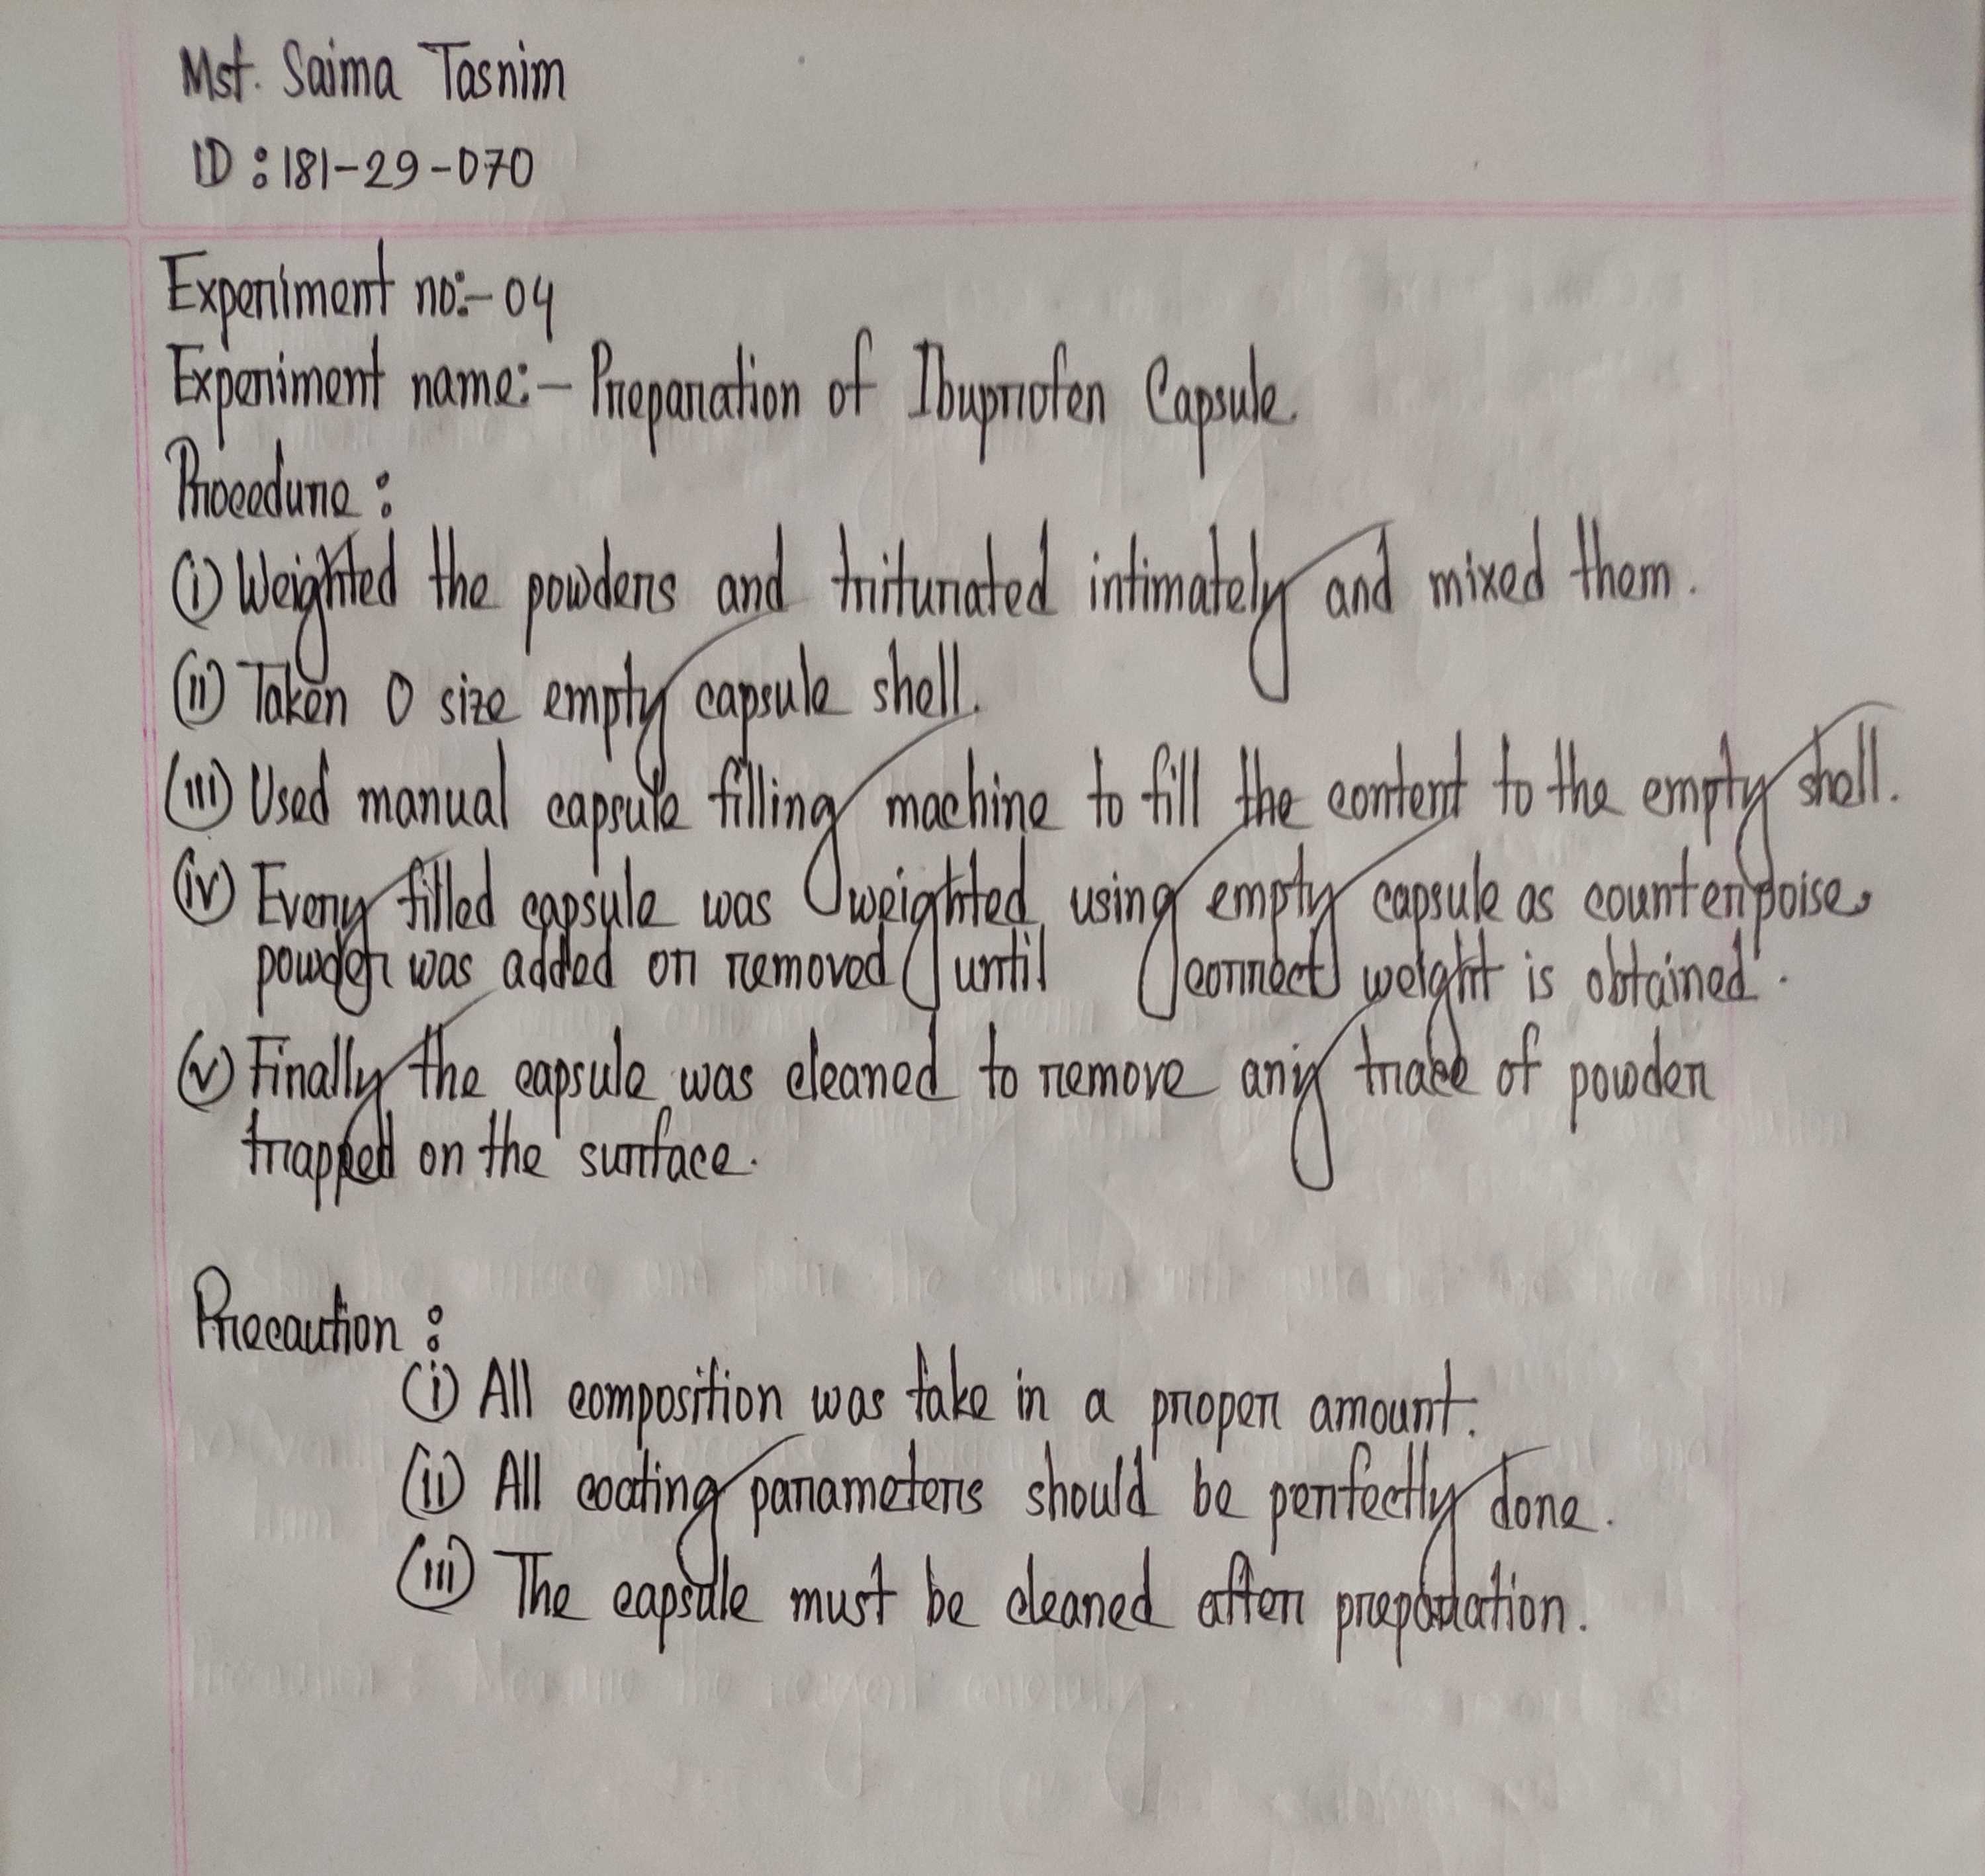 Mst. Saima Tasnim
ID : 181-29-070
Experiment no:- 04
Experiment name:- Preparation of Ibuprofen Capsule
Procedure :
(i) Weighted the powders and triturated intimately and mixed them.
(ii) Taken 0 size empty capsule shell.
(iii) Used manual capsule filling machine to fill the content to the empty shell.
(iv) Every filled capsule was weighted using empty capsule as counterpoise,
powder was added or removed until correct weight is obtained.
(v) Finally the capsule was cleaned to remove any trace of powder
trapped on the surface.
Precaution :
(i) All composition was take in a proper amount.
(ii) All coating parameters should be perfectly done.
(iii) The capsule must be cleaned after preparation.